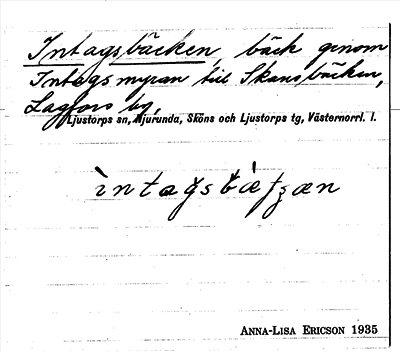 Intagsbäcken, bäck genom
Intagsmyran till Skansbäcken,
Lagfors by,
Ljustorps sn, Njurunda, Sköns och Ljustorps tg, Västernorrl. l.
ANNA-LISA ERICSON 1935